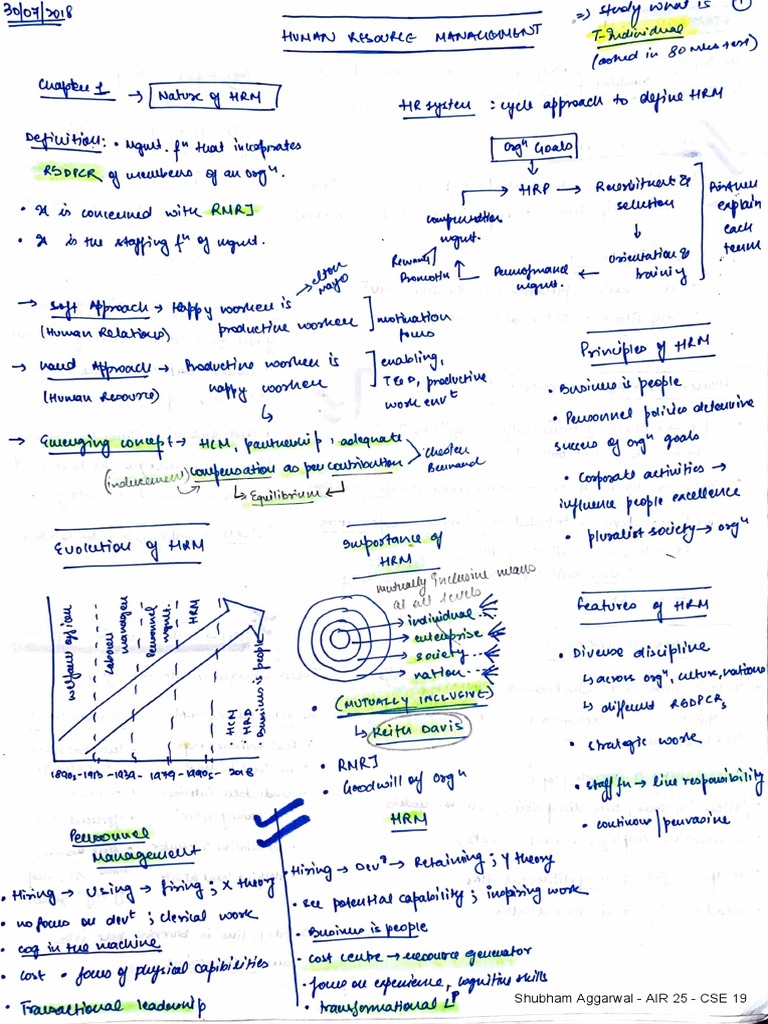 30/07/2018
HUMAN RESOURCE MANAGEMENT
=) study what is
T-Individual
(asked in 80 mks test)
1
Chapter 1 → Nature of HRM
Definition: • Mgmt. fⁿ that incorporates
RSDPCR of members of an orgⁿ.
• It is concerned with RMRJ
• It is the staffing fⁿ of mgmt.
HR system : cycle approach to define HRM
Orgⁿ Goals
HRP → Recruitment & selection
Orientation & training
Performance mgmt.
Reward/
Promotion
compensation
mgmt.
Further
explain
each
term
→ Soft Approach → Happy worker is → elton mayo
(Human Relations) productive worker ] motivation focus
→ Hard Approach → Productive worker is ] enabling,
(Human Resource) happy worker T & D, productive
work envᵗ
→ Emerging concept → HCM, partnership, adequate
(inducement) compensation as per contribution > Chester Bernard
↳ Equilibrium ↲
Principles of HRM
• Business is people
• Personnel policies determine
success of orgⁿ goals
• Corporate activities →
influence people excellence
• pluralist society → orgⁿ
Evolution of HRM
welfare officer
Labour manager
Personnel mgmt.
HRM
• HCM
• HRD
Business is people
1890s - 1913 - 1939 - 1979 - 1990s - 2018
Importance of
HRM
mutually inclusive means
at all levels
individual
enterprise
society
nation
• (MUTUALLY INCLUSIVE)
↳ Keith Davis
• RMRJ
• Goodwill of orgⁿ
Features of HRM
• Diverse discipline
↳ across orgⁿ, culture, nations
↳ different RSDPCRs
• strategic work
• staff fn → line responsibility
• continous / pervasive
Personnel
Management
• Hiring → Using → firing ; X theory
• no focus on devᵗ ; clerical work
• cog in the machine
• cost • focus of physical capibilities
• Transactional leadership
HRM
• Hiring → Devᵗ → Retaining ; Y theory
• see potential capability ; inspiring work
• Business is people
• cost centre → resource generator
• focus on experience, cognitive skills
• transformational Lᴾ
Shubham Aggarwal - AIR 25 - CSE 19